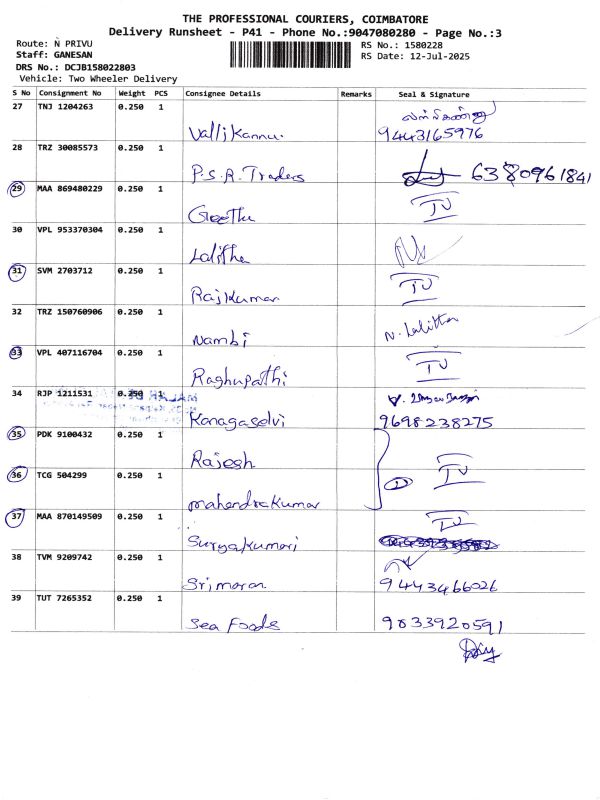 THE PROFESSIONAL COURIERS, COIMBATORE
Delivery Runsheet - P41 - Phone No.:9047080280 - Page No.:3
Route: N PRIVU
RS No.: 1580228
Staff: GANESAN
RS Date: 12-Jul-2025
DRS No.: DCJB158022803
Vehicle: Two Wheeler Delivery
S No Consignment No Weight PCS Consignee Details Remarks Seal & Signature
27 TNJ 1204263 0.250 1
Vallikannu. 9443165976
28 TRZ 30085573 0.250 1
P.S.R. Traders 6380961841
29 MAA 869480229 0.250 1
Geetha IU
30 VPL 953370304 0.250 1
Lalitha
31 SVM 2703712 0.250 1
Rajkumar IU
32 TRZ 150760906 0.250 1
Nambi N. Lalitha
33 VPL 407116704 0.250 1
Raghupathi IU
34 RJP 1211531 0.250 1
Kanagaselvi 9698238275
35 PDK 9100432 0.250 1
Rajesh
36 TCG 504299 0.250 1
IU
mahendrakumar
37 MAA 870149509 0.250 1
IU
Suryakumari
38 TVM 9209742 0.250 1
Srimaran 9443466026
39 TUT 7265352 0.250 1
Sea Foods 9833920591